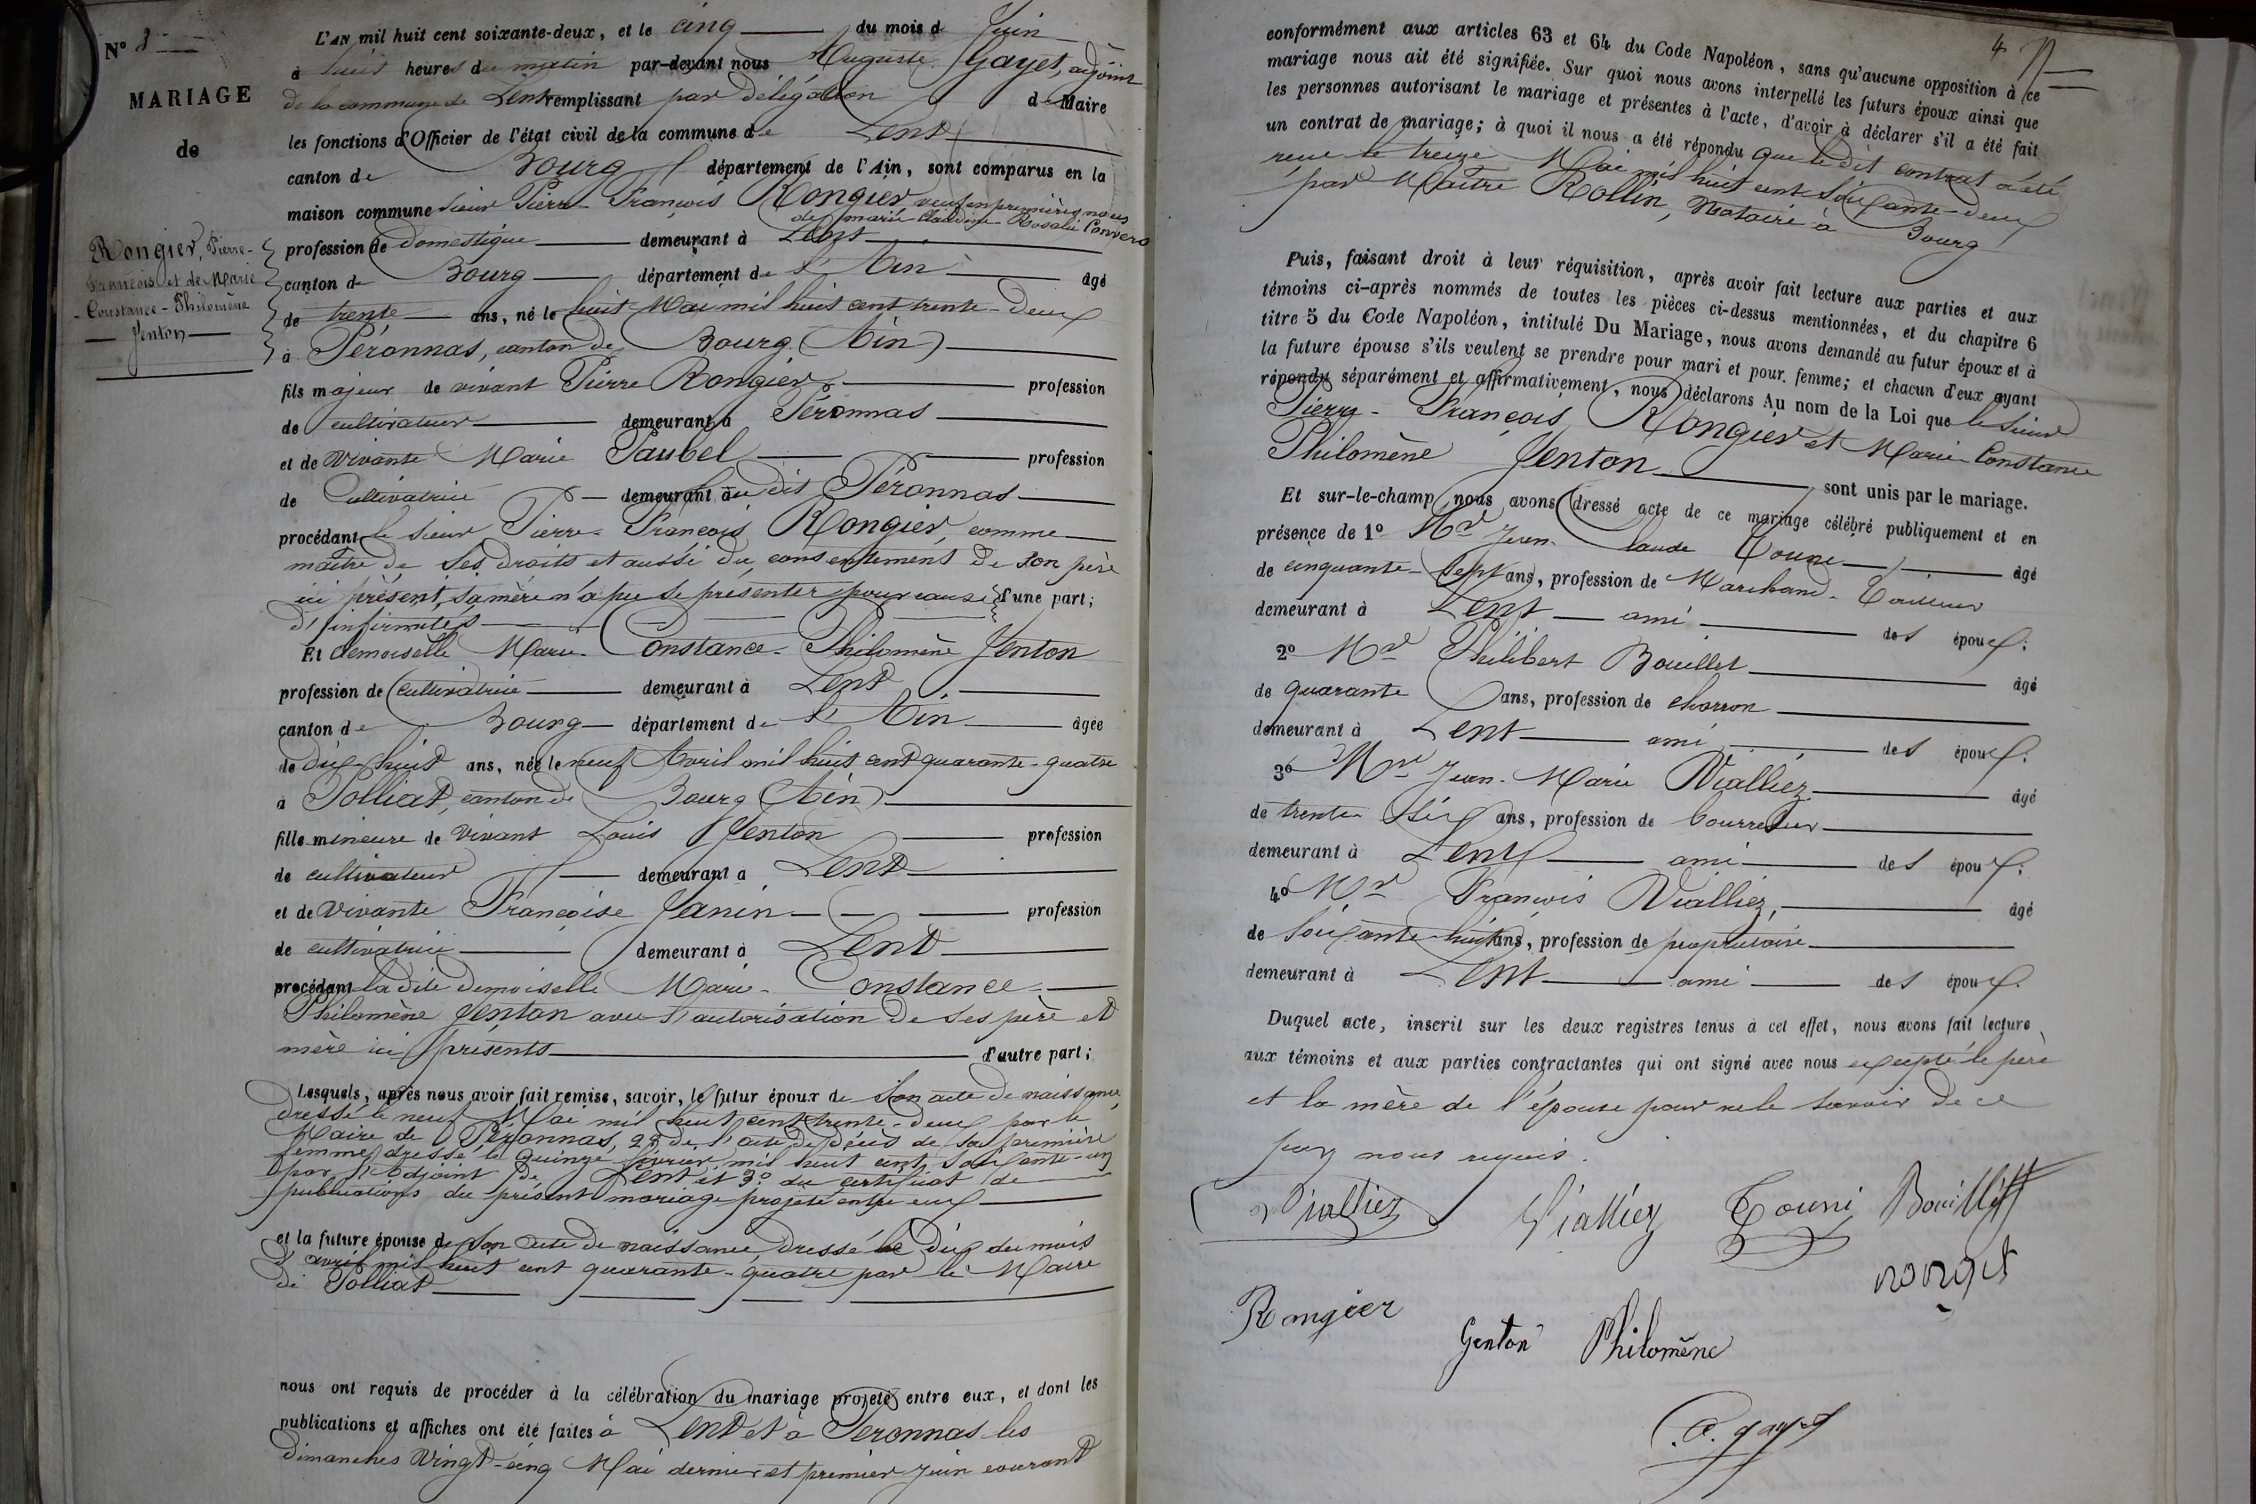 N° 3
MARIAGE
de
Rongier, Pierre-
François et de Marie
Constance-Philomène
Genton
L'AN mil huit cent soixante-deux, et le cinq du mois de Juin
à huit heures du matin par-devant nous Auguste Gayet, adjoint
de la commune de Lent remplissant par délégation de Maire
les fonctions d'Officier de l'état civil de la commune de Lent
canton de Bourg département de l'Ain, sont comparus en la
maison commune sieur Pierre-François Rongier, veuf en premières noces
de marie Claudine-Rosalie Convers
profession de domestique demeurant à Lent
canton de Bourg département de l'Ain âgé
de trente ans, né le huit Mai mil huit cent trente-deux
à Péronnas, canton de Bourg (Ain)
fils majeur de vivant Pierre Rongier profession
de cultivateur demeurant à Péronnas
et de vivante Marie Paubel profession
de Cultivatrice demeurant au dit Péronnas
procédant le sieur Pierre-François Rongier, comme
maître de ses droits et aussi du consentement de son père
ici présent, sa mère n'a pu se présenter pour cause d'une part;
d'infirmités
Et demoiselle Marie-Constance-Philomène Genton
profession de Cultivatrice demeurant à Lent
canton de Bourg département de l'Ain âgée
de dix-huit ans, née le neuf Avril mil huit cent quarante-quatre
à Polliat, canton de Bourg (Ain)
fille mineure de vivant Louis Genton profession
de cultivateur demeurant à Lent
et de vivante Françoise Janin profession
de cultivatrice demeurant à Lent
procédant la dite demoiselle Marie-Constance-
Philomène Genton avec l'autorisation de ses père et
mère ici présents d'autre part;
Lesquels, après nous avoir fait remise, savoir, le futur époux de son acte de naissance
dressé le neuf Mai mil huit cent trente-deux par le
Maire de Péronnas, 2° de l'acte de décès de sa première
femme dressé le quinze février mil huit cent soixante-un
par l'Adjoint de Lent et 3° du certificat de
publications du présent mariage projeté entre eux
et la future épouse de son acte de naissance dressé le dix du mois
d'avril mil huit cent quarante-quatre par le Maire
de Polliat
nous ont requis de procéder à la célébration du mariage projeté entre eux, et dont les
publications et affiches ont été faites à Lent et à Péronnas les
dimanches vingt-cinq Mai dernier et premier juin courant
4
conformément aux articles 63 et 64 du Code Napoléon, sans qu'aucune opposition à ce
mariage nous ait été signifiée. Sur quoi nous avons interpellé les futurs époux ainsi que
les personnes autorisant le mariage et présentes à l'acte, d'avoir à déclarer s'il a été fait
un contrat de mariage; à quoi il nous a été répondu que le dit contrat a été
reçu le treize Mai mil huit cent soixante-deux
par Maître Rollin, Notaire à Bourg
Puis, faisant droit à leur réquisition, après avoir fait lecture aux parties et aux
témoins ci-après nommés de toutes les pièces ci-dessus mentionnées, et du chapitre 6
titre 5 du Code Napoléon, intitulé Du Mariage, nous avons demandé au futur époux et à
la future épouse s'ils veulent se prendre pour mari et pour femme; et chacun d'eux ayant
répondu séparément et affirmativement, nous déclarons Au nom de la Loi que le sieur
Pierre-François Rongier et Marie-Constance
Philomène Genton sont unis par le mariage.
Et sur-le-champ nous avons dressé acte de ce mariage célébré publiquement et en
présence de 1° Mr Jean-Claude Touni âgé
de cinquante-sept ans, profession de Marchand-Tailleur
demeurant à Lent ami des époux.
2° Mr Philibert Bouillet âgé
de quarante ans, profession de charron
demeurant à Lent ami des époux.
3° Mr Jean-Marie Vialliez âgé
de trente-six ans, profession de bourrelier
demeurant à Lent ami des époux.
4° Mr François Vialliez, âgé
de soixante-huit ans, profession de propriétaire
demeurant à Lent ami des époux.
Duquel acte, inscrit sur les deux registres tenus à cet effet, nous avons fait lecture
aux témoins et aux parties contractantes qui ont signé avec nous excepté le père
et la mère de l'épouse pour ne le savoir de ce
par nous requis.
Vialliez Vialliez Touni Bouillet
Rongier Genton Philomène
A. Gayet